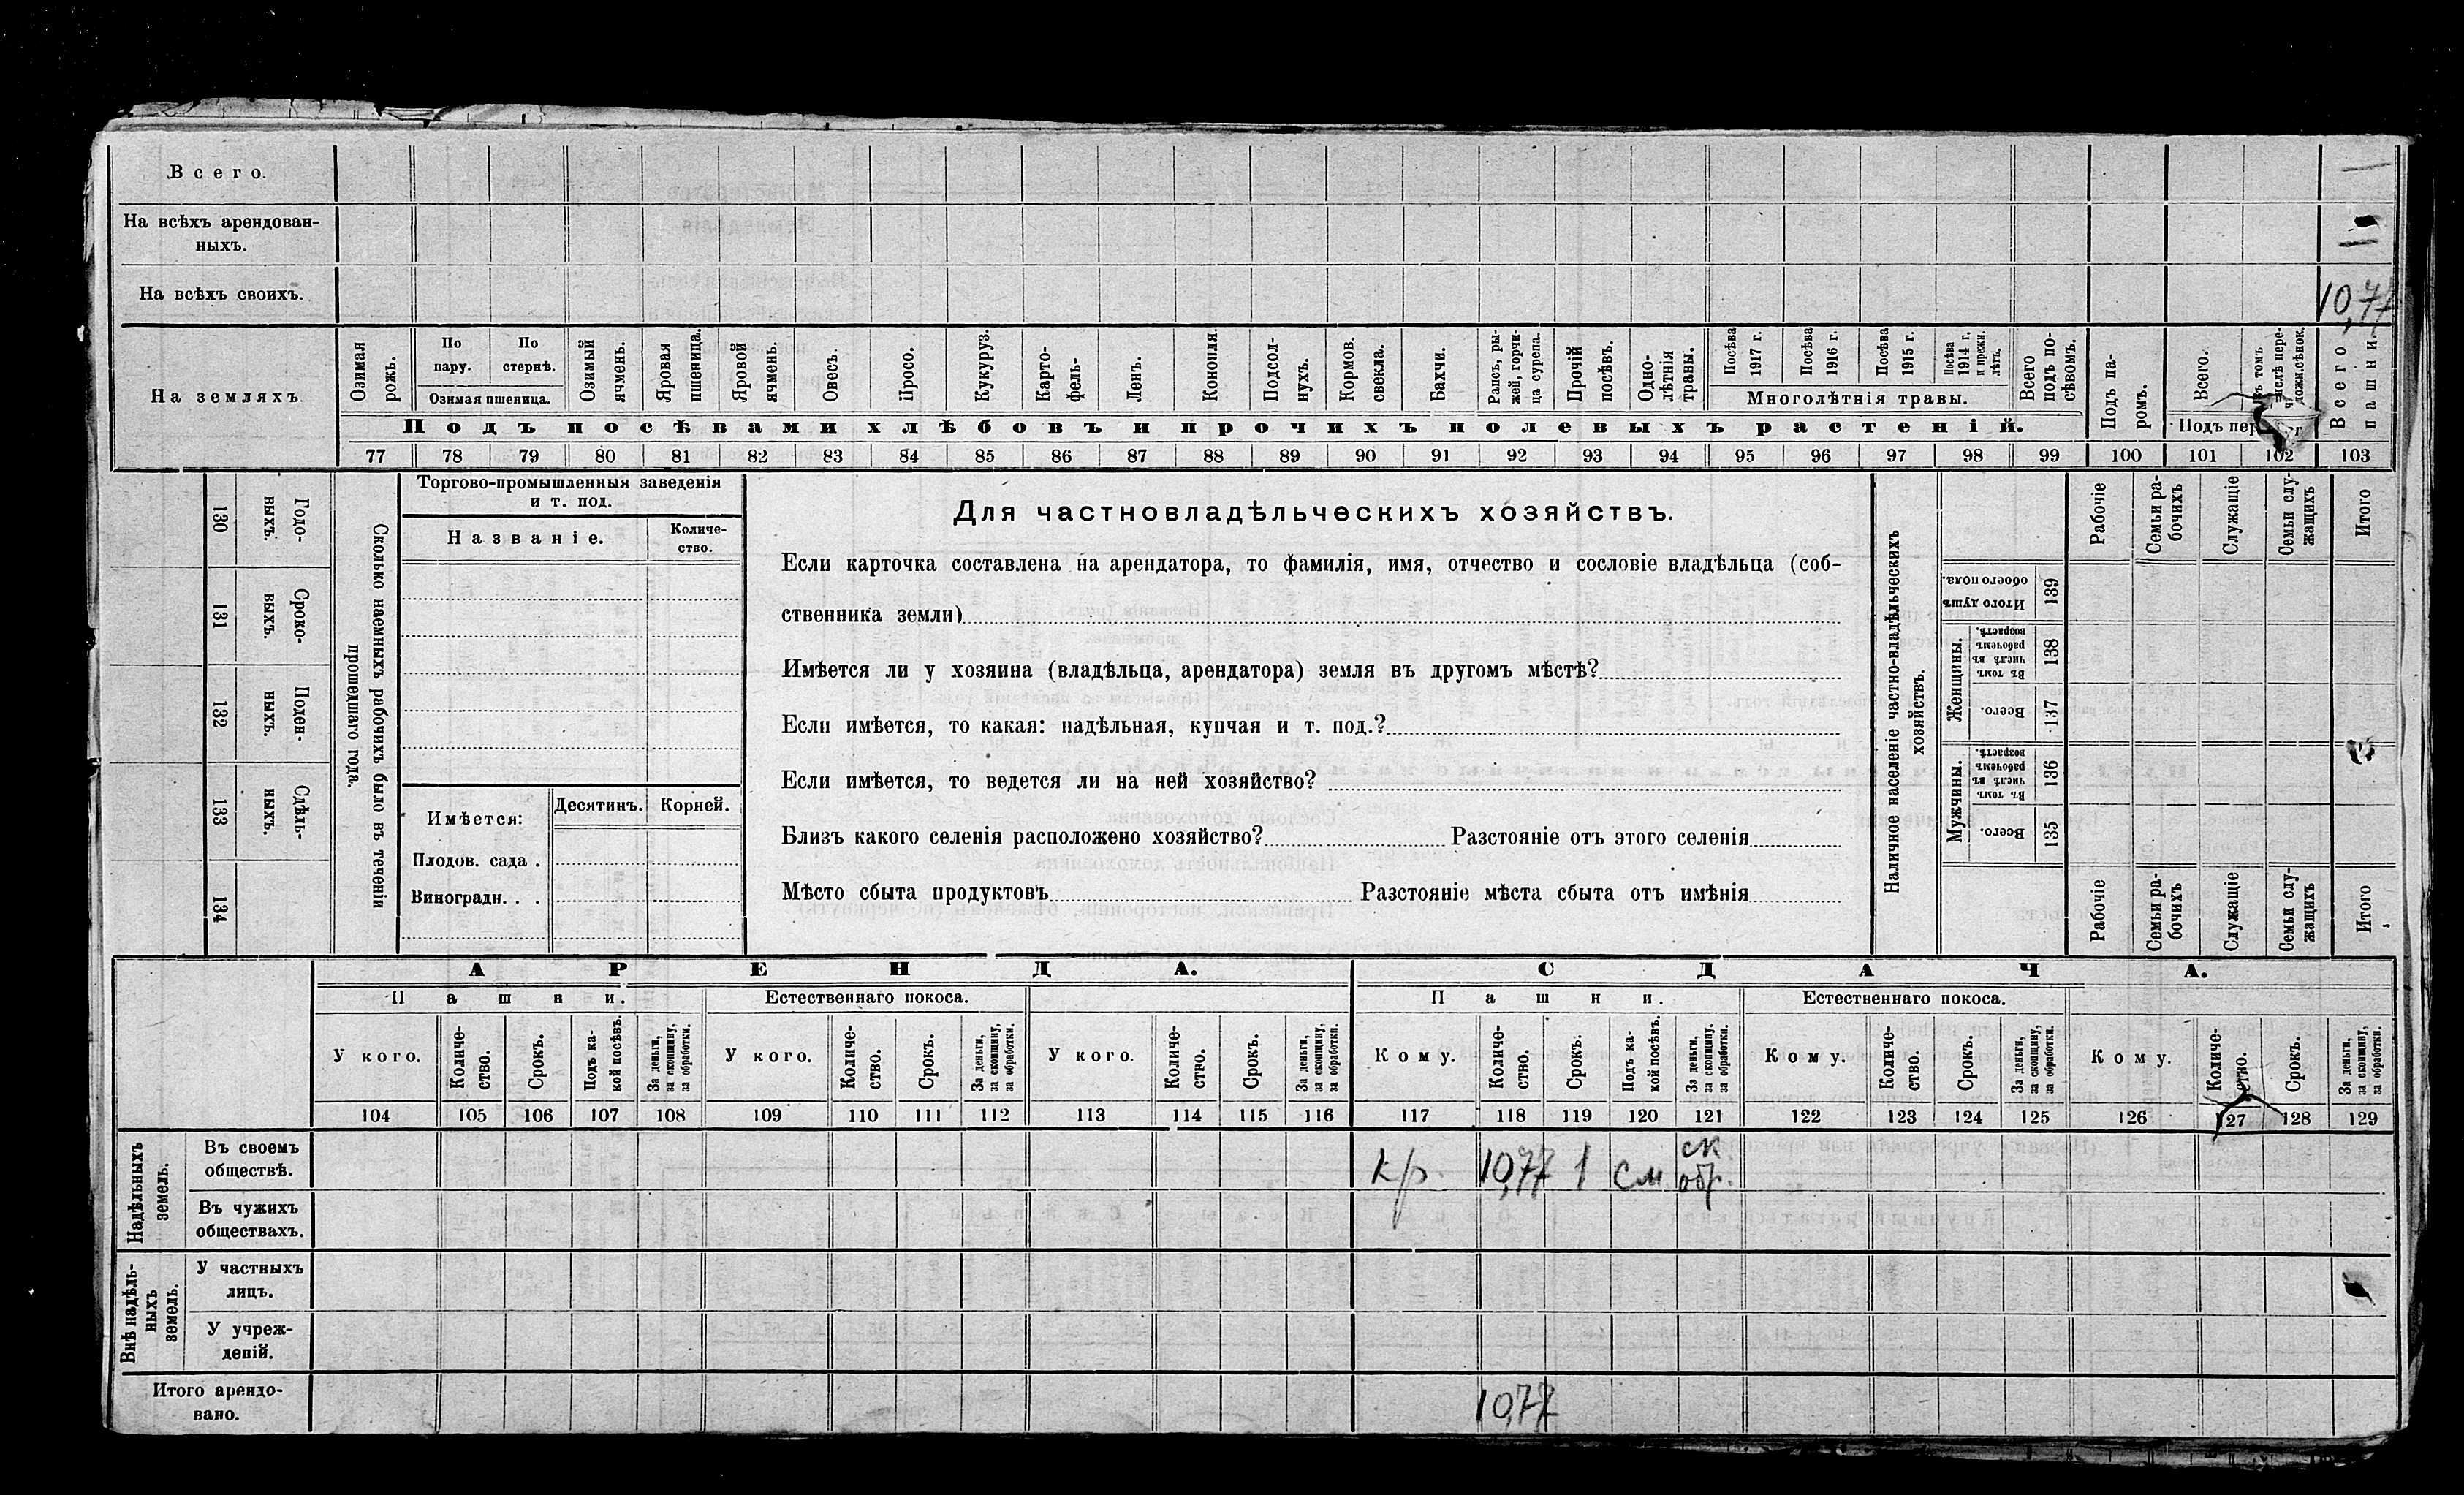 Всего.
На всѣхъ арендован-
ныхъ.
На всѣхъ своихъ.
10,77
На земляхъ
Озимая рожь.
По пару.
По стернѣ.
Озимая пшеница.
Озимый ячмень.
Яровая пшеница.
Яровой ячмень.
Овесъ.
Просо.
Кукуруз.
Карто-
фель-
Ленъ.
Конопля.
Подсол-
нухъ.
Кормов.
свекла.
Бахчи.
Рапсъ, ры-
жей, горчи-
ца сурепа.
Прочій
посѣвъ.
Одно-
лѣтнія
травы.
Посѣва
1917 г.
Посѣва
1916 г.
Посѣва
1915 г.
Посѣва
1914 г.
и прежн.
лѣтъ.
Многолѣтнія травы.
Всего
подъ по-
сѣвомъ.
Подъ па-
ромъ.
Всего.
томъ
числѣ пере-
Подъ пер
Всего
пашни.
Подъ посѣвами хлѣбовъ и прочихъ полевыхъ растеній.
77 78 79 80 81 82 83 84 85 86 87 88 89 90 91 92 93 94 95 96 97 98 99 100 101 102 103
130
Годо-
выхъ.
131
Сроко-
выхъ.
132
Поден-
ныхъ.
133
Сдѣль-
ныхъ.
134
Сколько наемныхъ рабочихъ было въ теченіи
прошедшаго года.
Торгово-промышленныя заведенія
и т. под.
Названіе.
Количе-
ство.
Имѣется:
Десятинъ.
Корней.
Плодов. сада .
Виноградн. . .
Для частновладѣльческихъ хозяйствъ.
Если карточка составлена на арендатора, то фамилія, имя, отчество и сословіе владѣльца (соб-
ственника земли)
Имѣется ли у хозяина (владѣльца, арендатора) земля въ другомъ мѣстѣ?
Если имѣется, то какая: надѣльная, купчая и т. под.?
Если имѣется, то ведется ли на ней хозяйство?
Близъ какого селенія расположено хозяйство? Разстояніе отъ этого селенія
Мѣсто сбыта продуктовъ Разстояніе мѣста сбыта отъ имѣнія
Наличное населеніе частно-владѣльческихъ
хозяйствъ.
Рабочіе
Семьи ра-
бочихъ
Служащіе
Семьи слу-
жащихъ
Итого
Итого душъ
обоего пола.
139
Женщины.
Въ томъ
числѣ въ
рабочемъ
возрастѣ.
138
Всего.
137
Мужчины.
Въ томъ
числѣ въ
рабочемъ
возрастѣ.
136
Всего.
135
Рабочіе
Семьи ра-
бочихъ
Служащіе
Семьи слу-
жащихъ
Итого
АРЕНДА.
СДАЧА.
Пашни.
Естественнаго покоса.
Пашни.
Естественнаго покоса.
У кого.
Количе-
ство.
Срокъ.
Подъ ка-
кой посѣвъ.
За деньги,
за скопщину,
за обработки.
У кого.
Количе-
ство.
Срокъ.
За деньги,
за скопщину,
за обработки.
У кого.
Количе-
ство.
Срокъ.
За деньги,
за скопщину,
за обработки.
Кому.
Количе-
ство.
Срокъ.
Подъ ка-
кой посѣвъ.
За деньги,
за скопщину,
за обработки.
Кому.
Количе-
ство.
Срокъ.
За деньги,
за скопщину,
за обработки.
Кому.
Количе-
ство.
Срокъ.
За деньги,
за скопщину,
за обработки.
104 105 106 107 108 109 110 111 112 113 114 115 116 117 118 119 120 121 122 123 124 125 126 127 128 129
Надѣльныхъ
земель.
Въ своемъ
обществѣ.
кр. 10,77 1 см ск
обр.
Въ чужихъ
обществахъ.
Внѣ надѣль-
ныхъ
земель.
У частныхъ
лицъ.
У учреж-
деній.
Итого арендо-
вано.
10,77